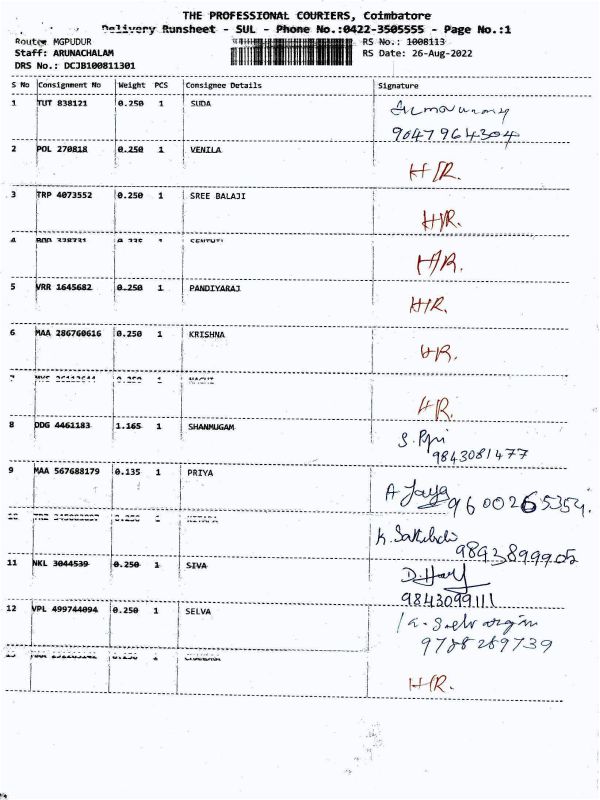 THE PROFESSIONAL COURIERS, Coimbatore
Delivery Runsheet - SUL - Phone No.:0422-3505555 - Page No.:1
Route: MGPUDUR RS No.: 1008113
Staff: ARUNACHALAM RS Date: 26-Aug-2022
DRS No.: DCJB100811301
S No Consignment No Weight PCS Consignee Details Signature
1 TUT 838121 0.250 1 SUDA
9047964304
2 POL 270818 0.250 1 VENILA H/R.
3 TRP 4073552 0.250 1 SREE BALAJI H/R.
4 1 H/R.
5 VRR 1645682 0.250 1 PANDIYARAJ H/R.
6 MAA 286760616 0.250 1 KRISHNA HR.
1 HR.
8 DDG 4461183 1.165 1 SHANMUGAM
9843081477
9 MAA 567688179 0.135 1 PRIYA A Jaya 9600265354.
1 9843899905
11 NKL 3044539 0.250 1 SIVA
9843099111
12 VPL 499744094 0.250 1 SELVA
9788289739
1 H/R.